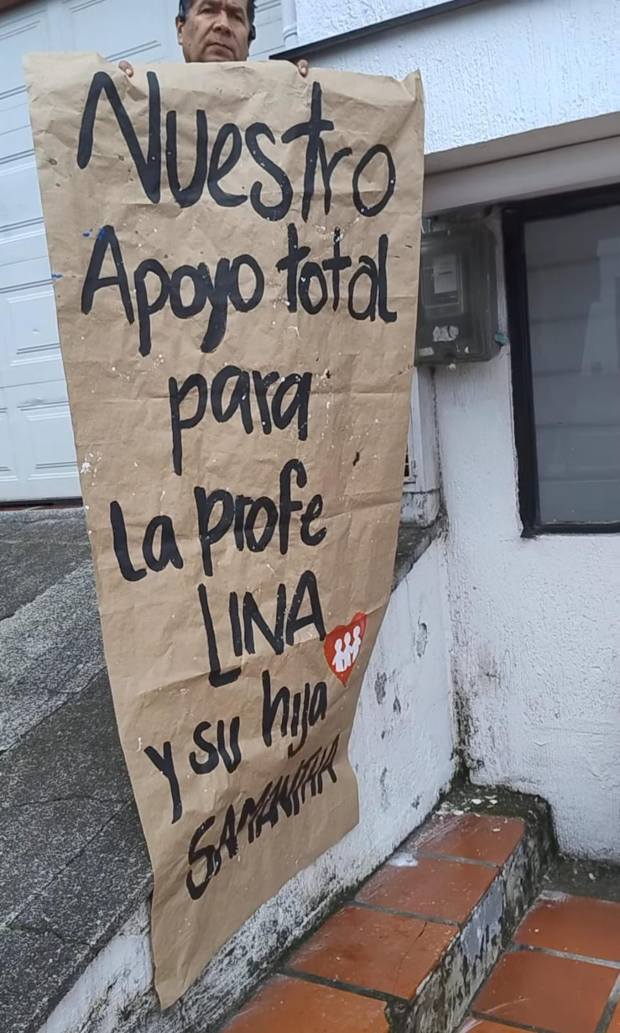 Nuestro
Apoyo total
para
La profe
LINA
y su hija
SAMANTHA